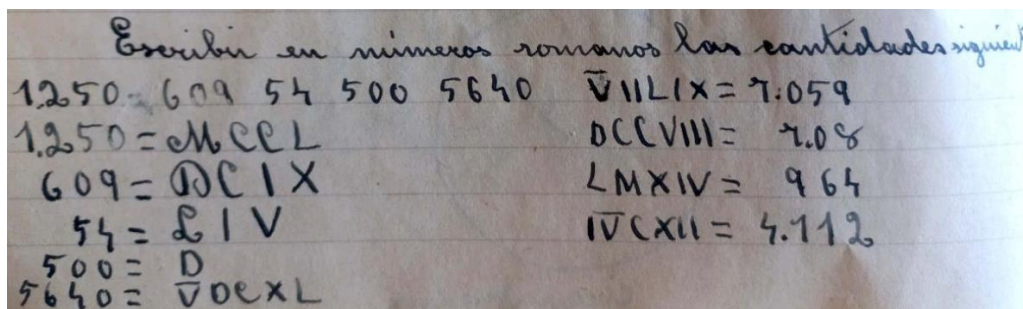 Escribir en números romanos las cantidades siguient
1.250 - 609 54 500 5640
1.250 = MCCL
609 = DCIX
54 = LIV
500 = D
5640 = V̅DCXL
V̅IILIX = 7.059
DCCVIII = 7.08
LMXIV = 964
IV̅CXII = 4.112